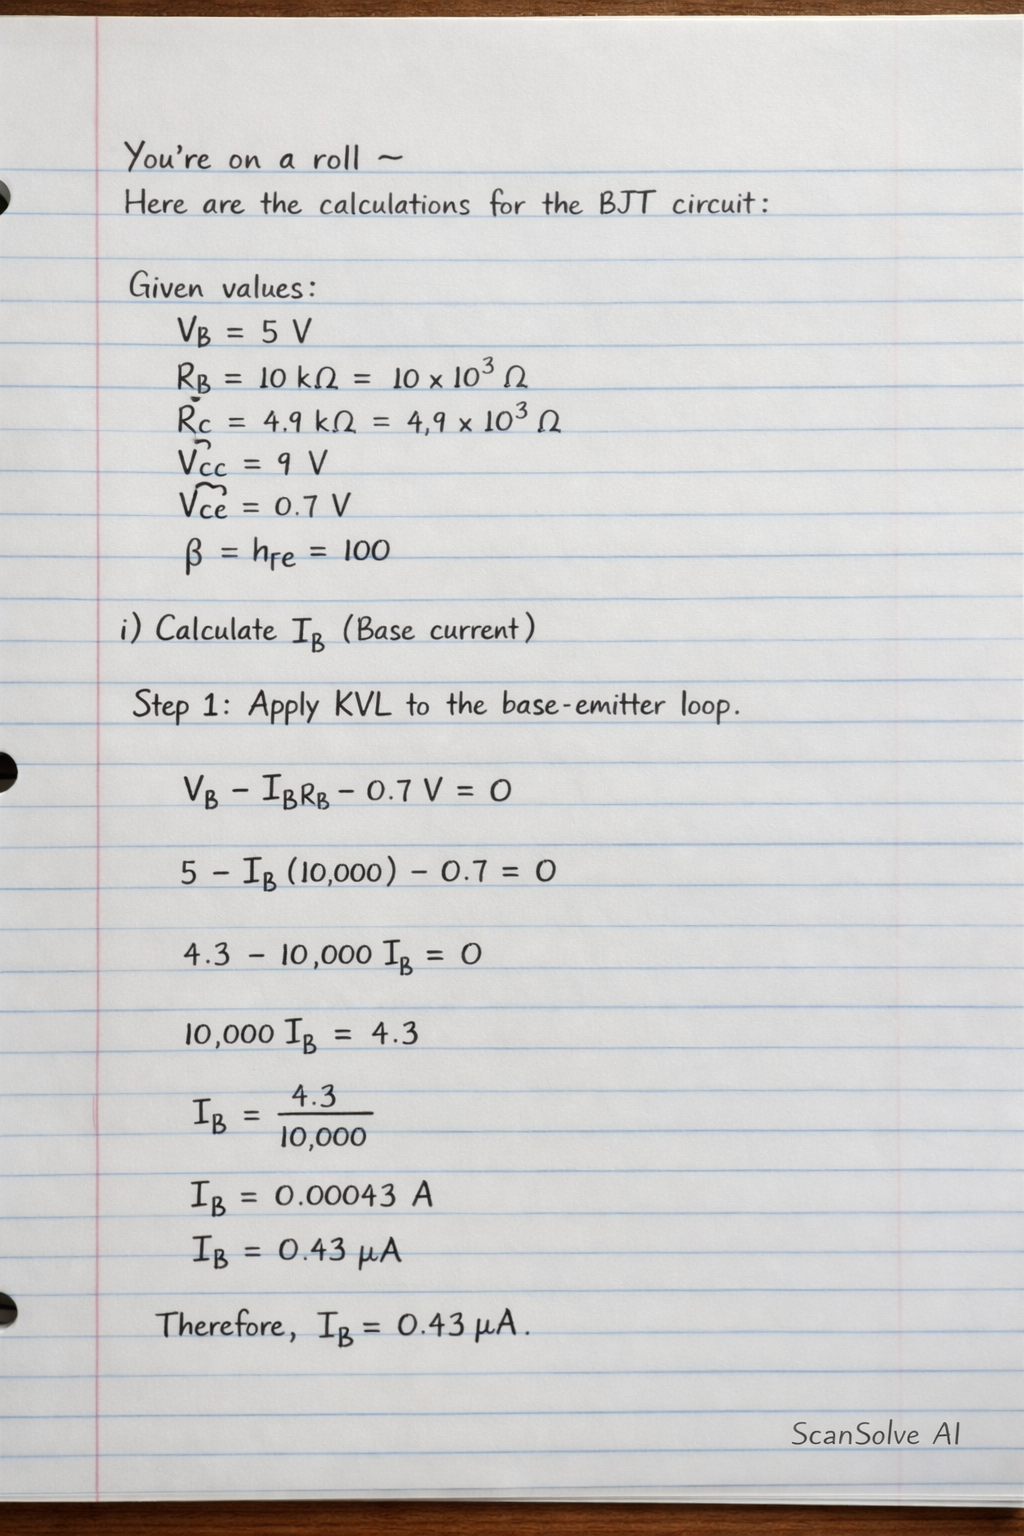 You're on a roll ~
Here are the calculations for the BJT circuit:
Given values:
V_B = 5 V
R_B = 10 kΩ = 10 × 10³ Ω
R_C = 4.9 kΩ = 4,9 × 10³ Ω
V_cc = 9 V
V_ce = 0.7 V
β = h_fe = 100
i) Calculate I_B (Base current)
Step 1: Apply KVL to the base-emitter loop.
V_B − I_B R_B − 0.7 V = 0
5 − I_B (10,000) − 0.7 = 0
4.3 − 10,000 I_B = 0
10,000 I_B = 4.3
I_B = 4.3 / 10,000
I_B = 0.00043 A
I_B = 0.43 μA
Therefore, I_B = 0.43 μA.
ScanSolve AI